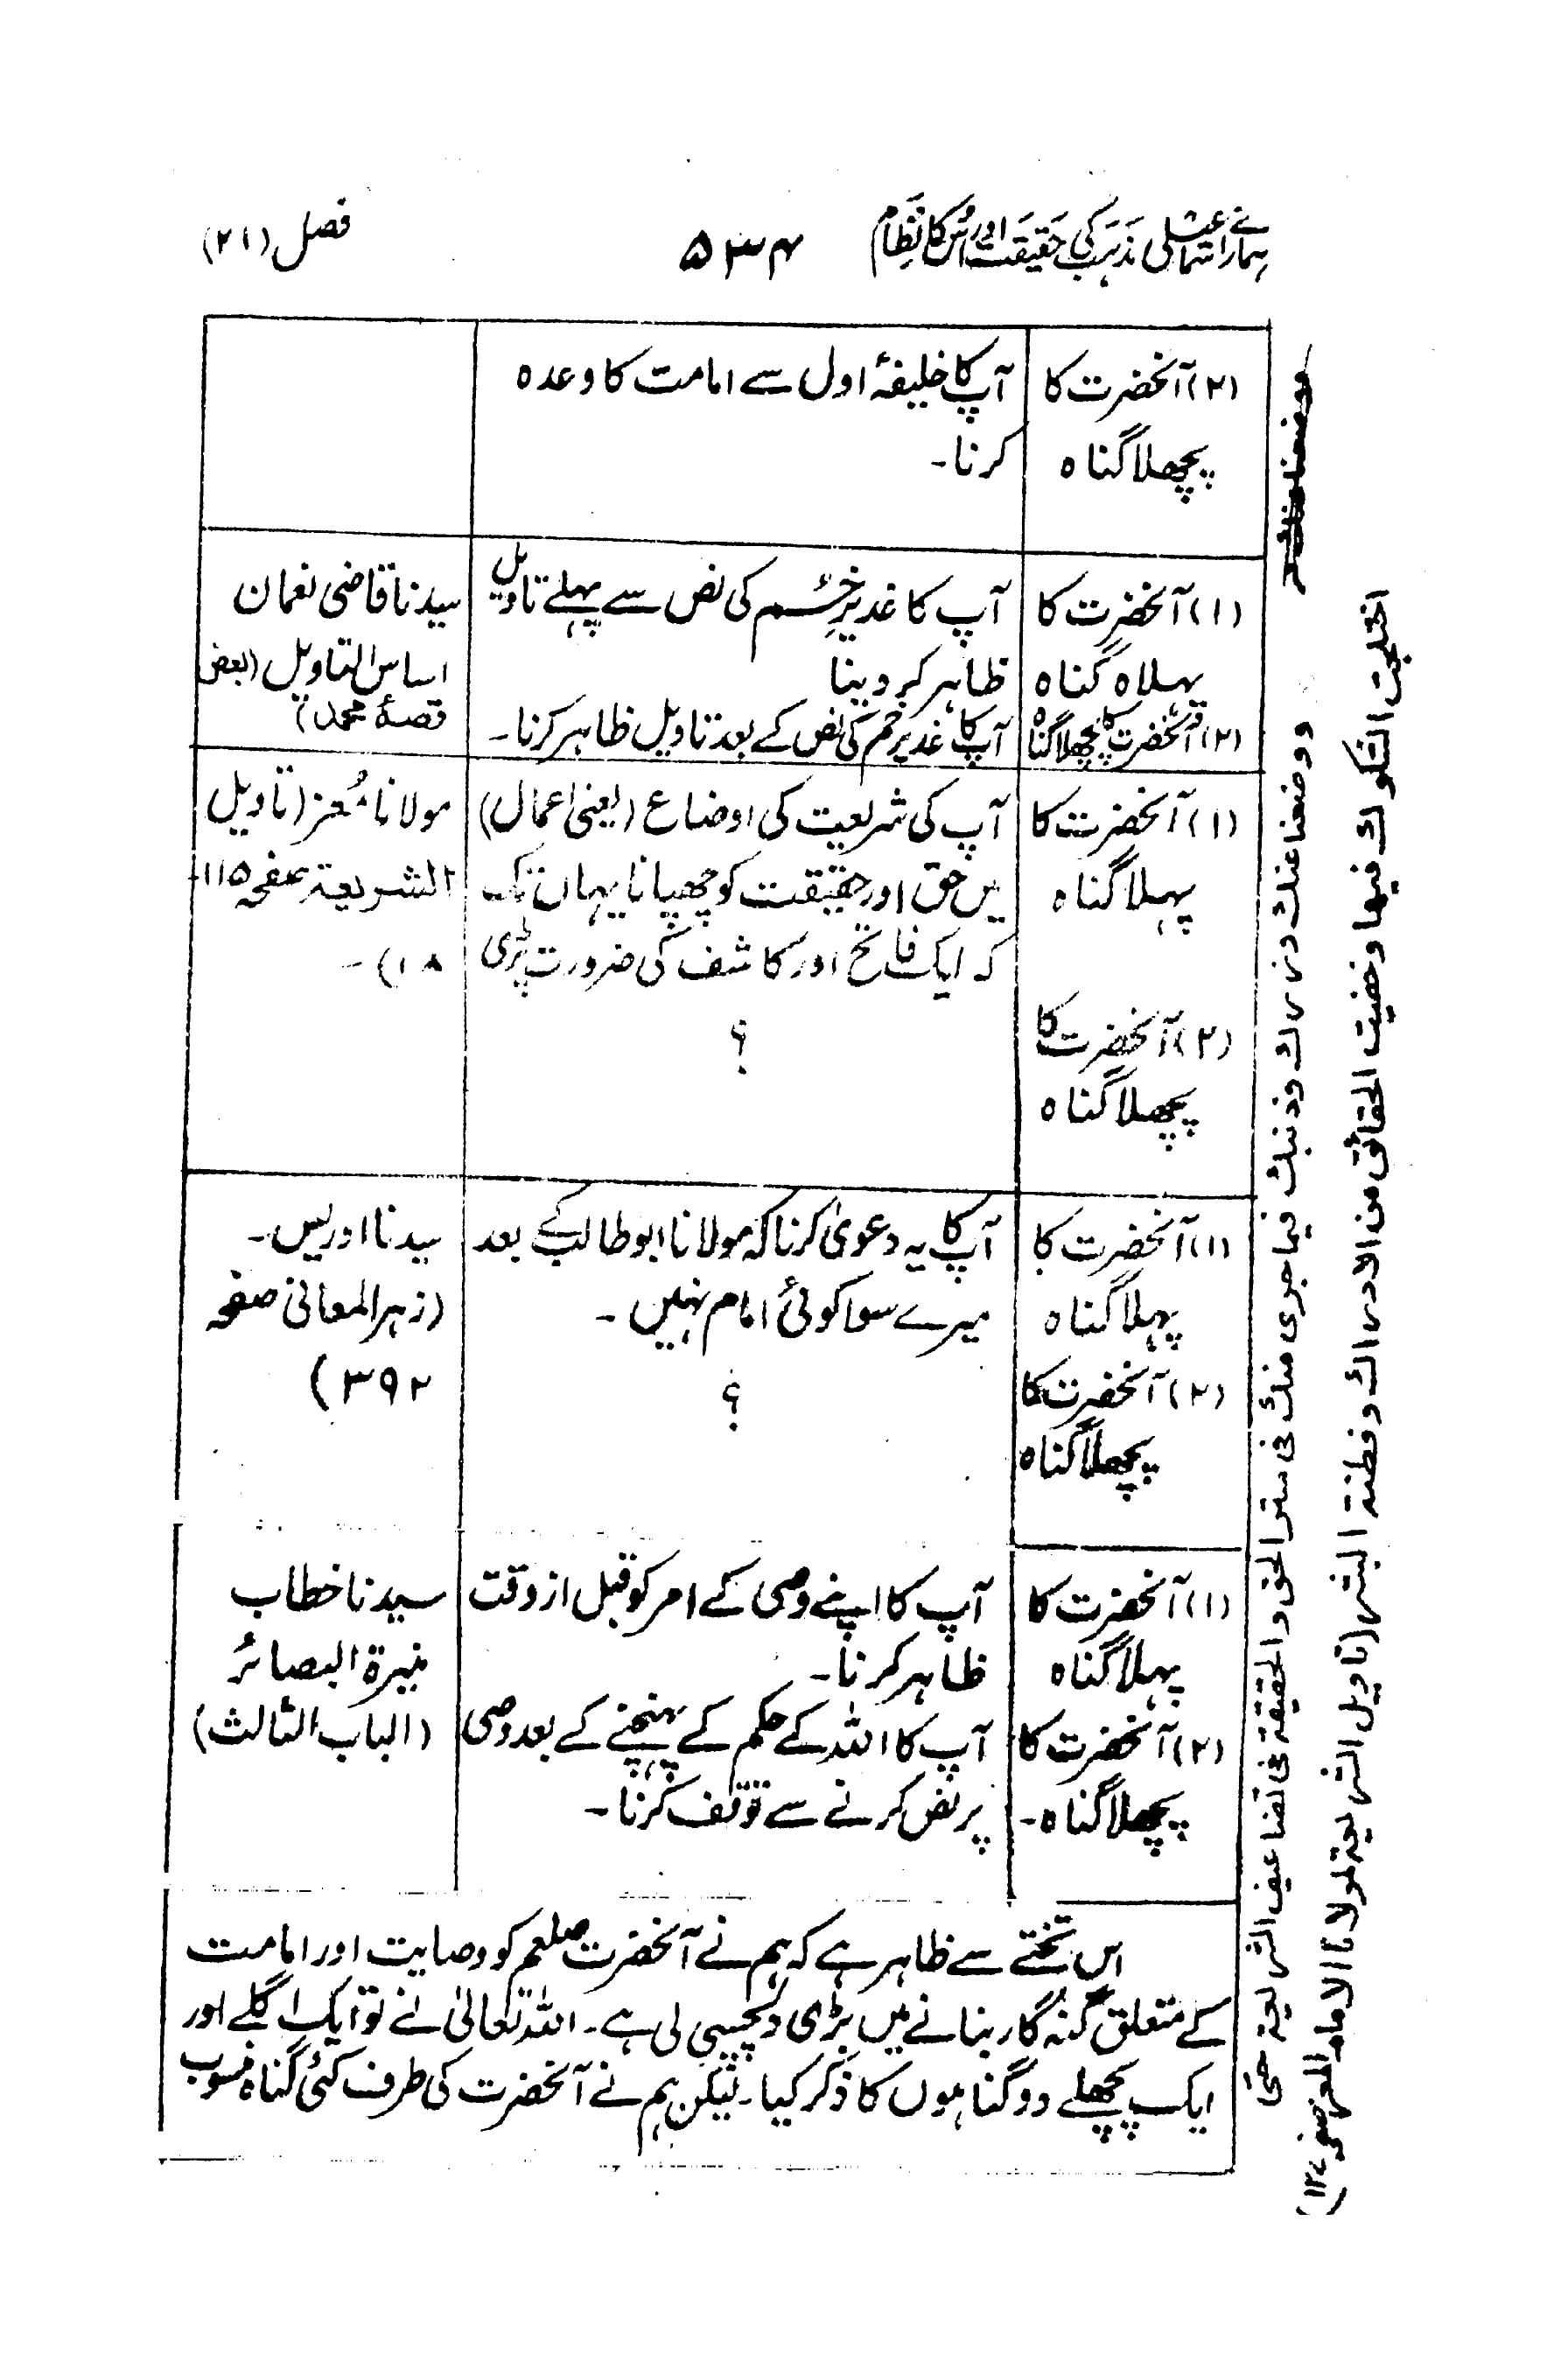 ہمارے اسماعیلی مذہب کی حقیقت اور اس کا نظام
۵۳۴
فصل (۲۱)
(۲) آنحضرت کا
پچھلا گناہ
آپ کا خلیفۂ اول سے امامت کا وعدہ
کرنا۔
(۱) آنحضرت کا
پہلاہ گناہ
(۲) آنحضرت کا پچھلا گناہ
آپ کا غدیرِ خُم کی نص سے پہلے تاویل
ظاہر کر دینا
آپ کا غدیر خم کی نص کے بعد تاویل ظاہر کرنا۔
سیدنا قاضی نعمان
اساس التاویل (بعض
قصۂ محمد)
(۱) آنحضرت کا
پہلا گناہ
(۲) آنحضرت کا
پچھلا گناہ
آپ کی شریعت کی اوضاع (یعنی اعمال)
میں حق اور حقیقت کو چھپانا یہاں تک
کہ ایک فاتح اور کاشف کی ضرورت پڑی
؟
مولانا مُعز (تاویل
الشریعۃ صفحہ ۱۱۵۔
۱۸)۔
(۱) آنحضرت کا
پہلا گناہ
(۲) آنحضرت کا
پچھلا گناہ
آپ کا یہ دعویٰ کرنا کہ مولانا ابو طالب کے بعد
میرے سوا کوئی امام نہیں۔
؟
سیدنا ادریس۔
(زہر المعانی صفحہ
۳۹۲)
(۱) آنحضرت کا
پہلا گناہ
(۲) آنحضرت کا
پچھلا گناہ۔
آپ کا اپنے وصی کے امر کو قبل از وقت
ظاہر کرنا۔
آپ کا اللہ کے حکم کے پہنچنے کے بعد وصی
پر نص کرنے سے توقف کرنا۔
سیدنا خطاب
منیرۃ البصائر
(الباب الثالث)
اس تختے سے ظاہر ہے کہ ہم نے آنحضرت صلعم کو وصایت اور امامت
کے متعلق گنہ گار بنانے میں بڑی دلچسپی لی ہے۔ اللہ تعالیٰ نے تو ایک اگلے اور
ایک پچھلے دو گناہوں کا ذکر کیا۔ لیکن ہم نے آنحضرت کی طرف کئی گناہ منسوب
ووضعنا عنك وزرك وذنبك فيما جرى منك فى ستر الحق والحقيقة فى تضاعيف الشريعة حتى
اختلجت الشكوك فيها وخفيت الحقائق من الادراك وفطنة البشر (تاویل الشریعۃ لمولانا الامام المعز صفحہ ۱۲۷)